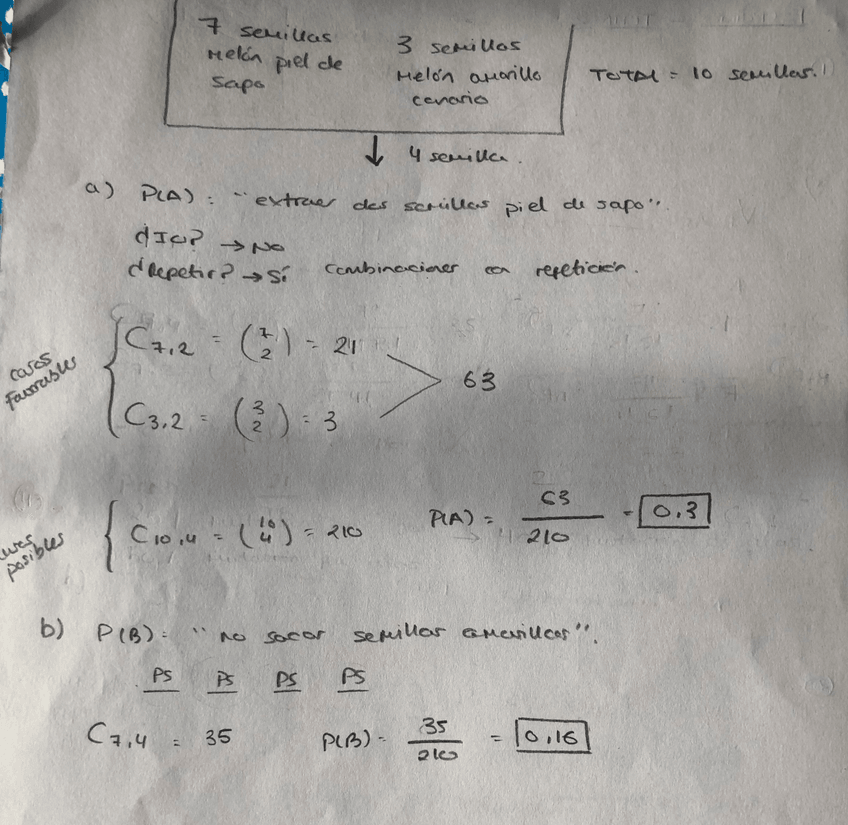 7 semillas
Melón piel de
sapo
3 semillas
Melón amarillo
canario
TOTAL = 10 semillas.
↓ 4 semillas.
a) P(A): "extraer dos semillas piel de sapo".
¿IO? → No
¿Repetir? → Sí combinaciones con repetición.
casos
favorables
C7,2 = (7 2) = 21
63
C3,2 = (3 2) = 3
casos
posibles
C10,4 = (10 4) = 210
P(A) = 63/210 = 0,3
b) P(B): "no sacar semillas amarillas".
PS PS PS PS
C7,4 = 35
P(B) = 35/210 = 0,16